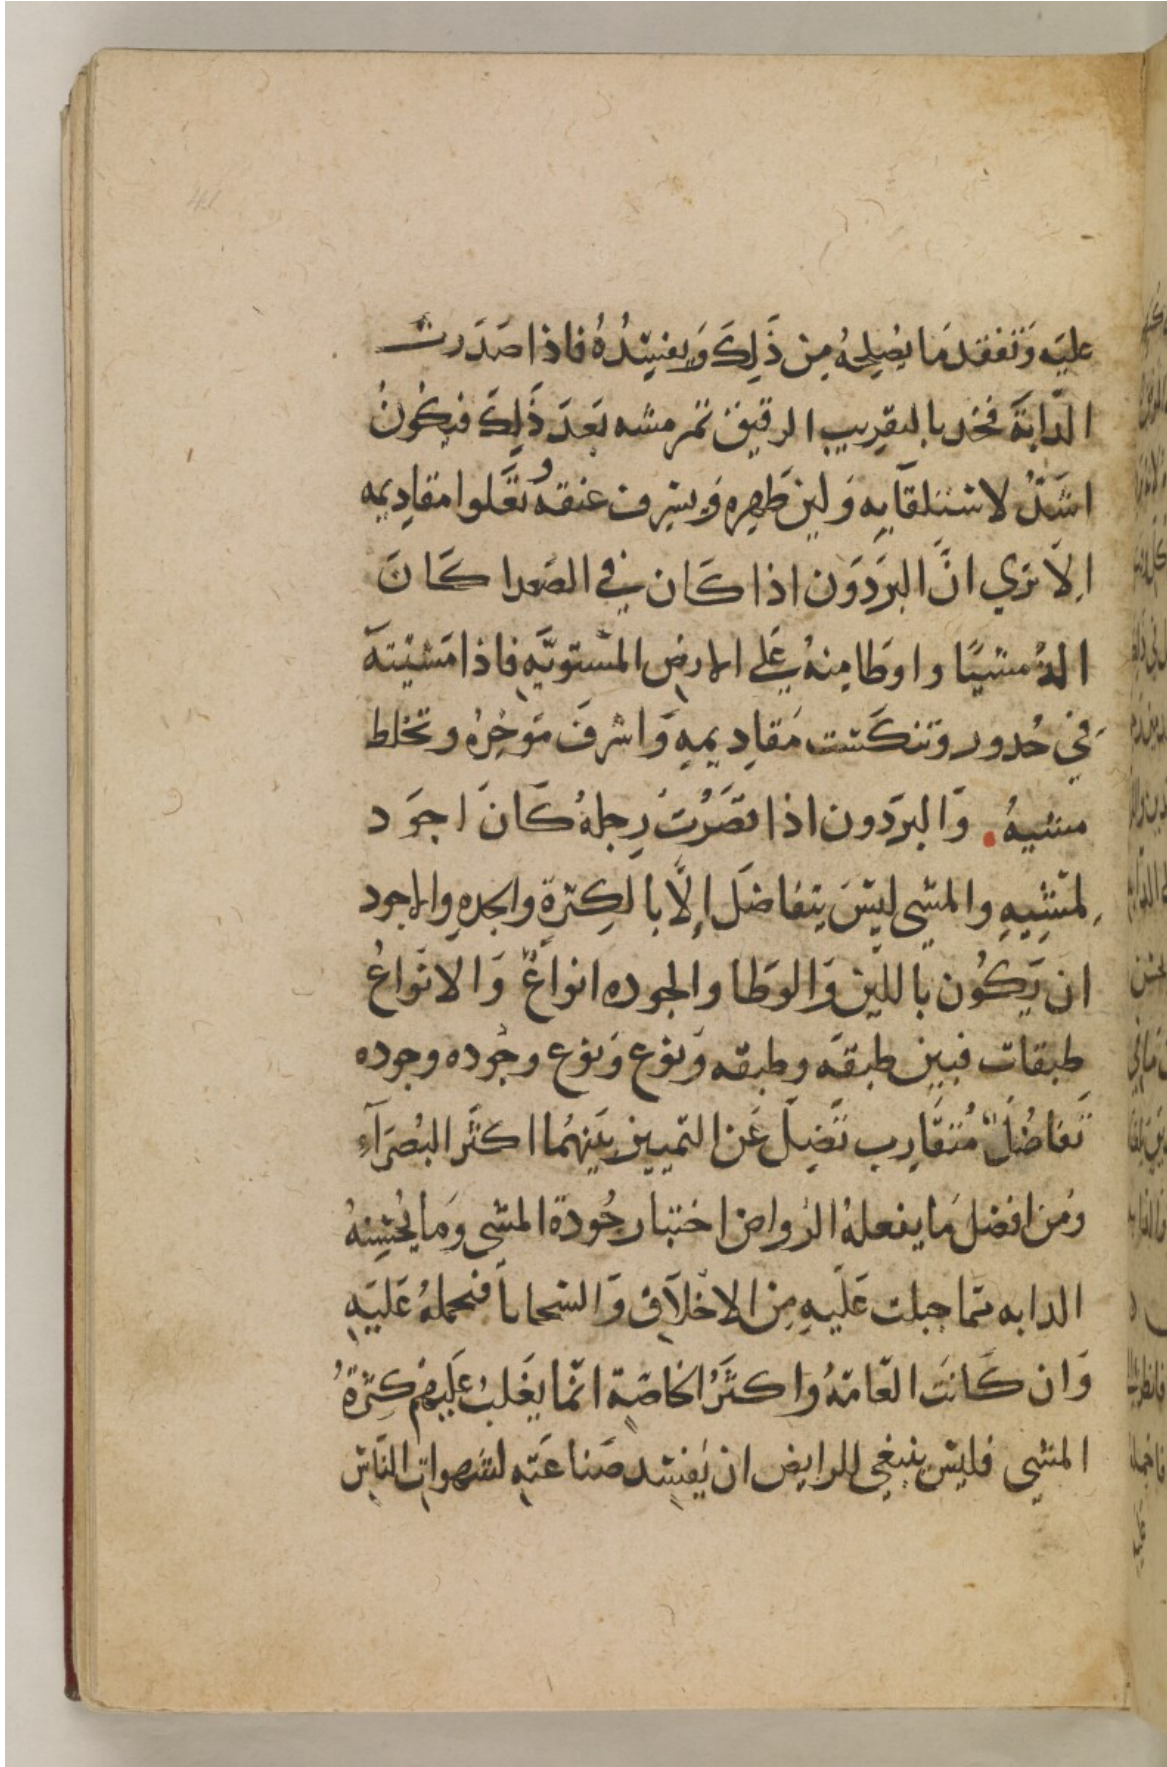 عليه وَتفقد مَا يصُلِحهُ مِن ذَلِكَ وَيفسِدُهُ فاذا صَدَرت
الدَّابَةَ فخد بالتقرِيبِ الرقيق ثم مشه بَعدَ ذَلِكَ فيكُونُ
اشَدُّ لاستلقَايِهِ وَلين ظهرِهِ وَيشرِف عنقهُ وتَعلوا مقادِيمِهِ
الَا تري انَّ البرَدَوَن اذا كَان فِي الصَعدا كَانَ
الذُ مشيًا واوطَا مِنهُ عَلي الارضِ المسْتويَّهِ فاذا مَشيتَهَ
فِي حُدور وتنكَست مَقادِيمِهِ وَاشرفَ مَوخِرُهُ وتخلط
مشيهُ . وَالبرَدون اذا قصَرُت رِجلهُ كَانَ اجوَد
لمَشِيهِ والمشي ليسَ يتفاضَل إلَّا بالكِثرةِ والجدهِ والاجود
ان يَكُون باللّين وَالوَطا والجوده انواعٌ وَالانوَاعُ
طبقات فبين طبقَه وطبقه وَنوع وَنوع وجُوده وجوده
تَفاضُلٌ مُتقَارِب تَضِلَ عَن التمييز بَينهُما اكثَر البُصَرآءِ
وَمن افضل مَا يفعلهُ الرُواض اختبار جُودة المشي وَمَا يُحسِنهُ
الدابه مما جبلت عَلَيهِ مِن الاخْلَاقِ وَالسَحايا فيحملهُ عَليَهِ
وَان كَانَت العَامَّهُ وَاكثَرُ الخاصَّة انمَّا يغَلبُ عَليهِمْ كِثرَةُ
المشي فليسَ ينبغي للرايض ان يُفسِد صَنَاعَتِهِ لشهواتِ النَّاسِ